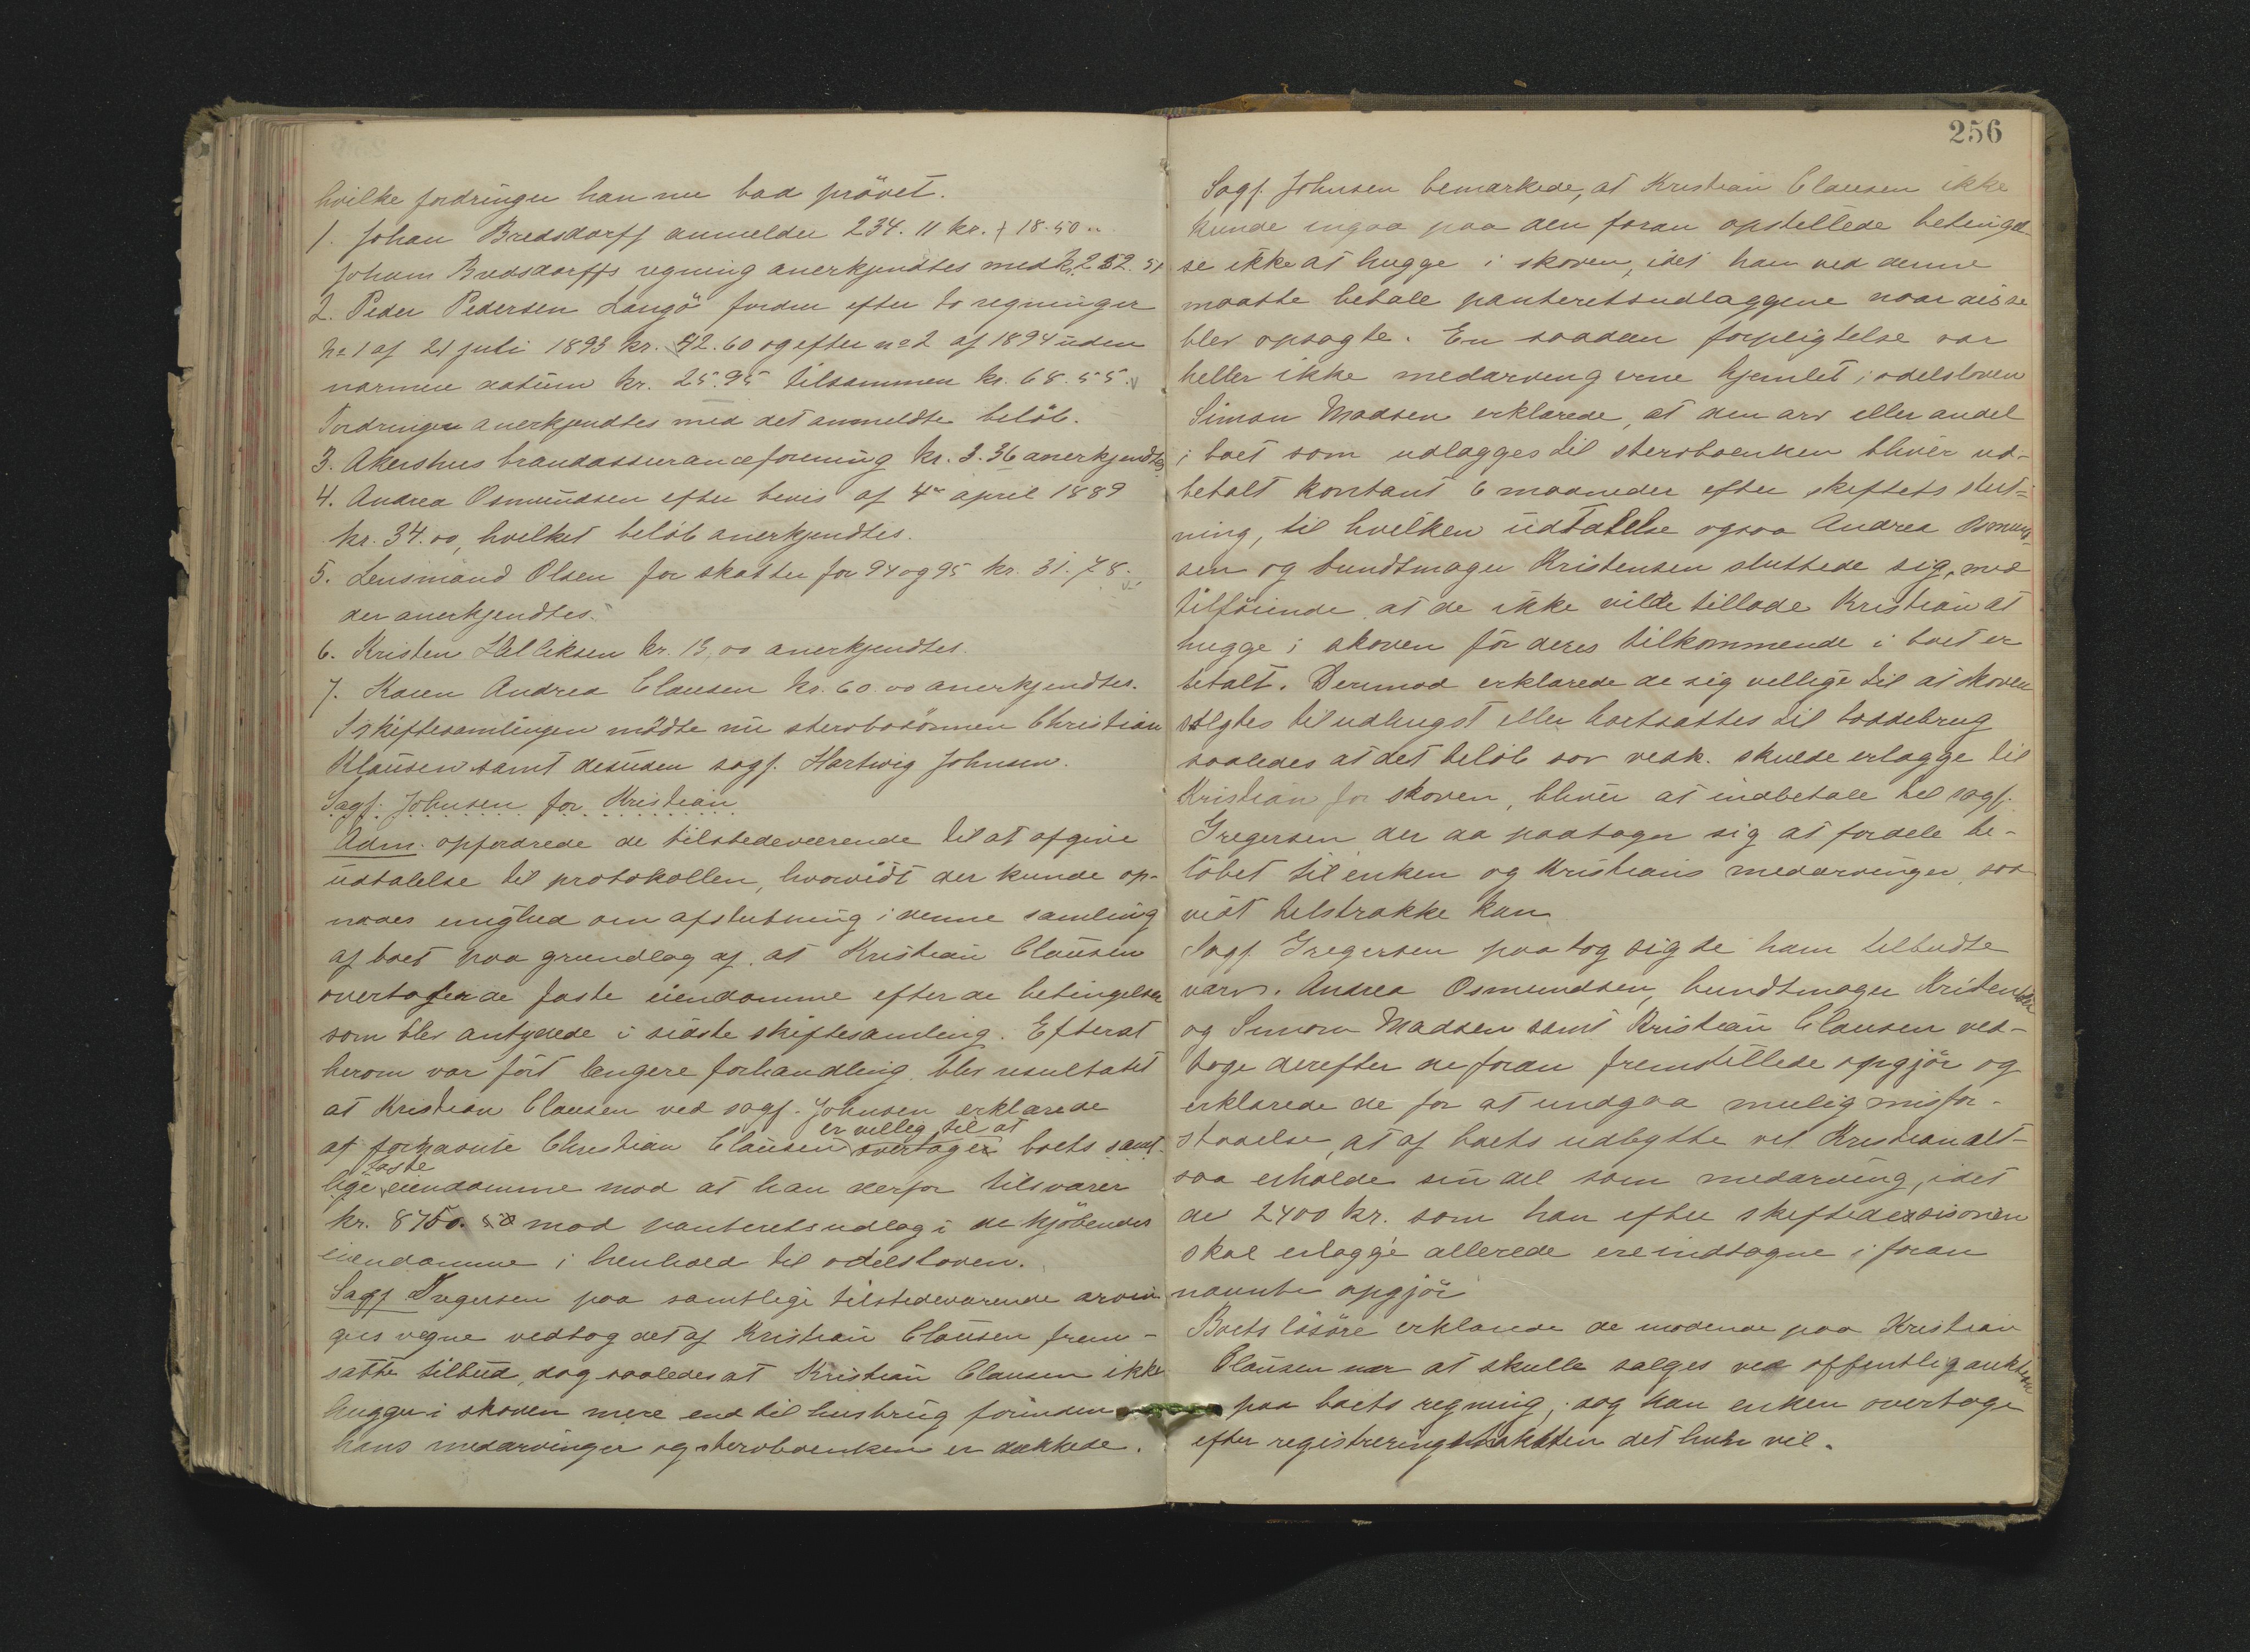 hvilke fordringer han nu bad prövet.
1. Johan Bredsdorff anmelder 234.11 kr. + 18.50
Johans Bredsdorffs regning anerkjendtes med kr. 252.51
2. Peder Pedersen Langö fordrer efter to regninger
No 1 af 21 juli 1893 kr. 42.60 og efter no 2 af 1894 uden
nærmere datum kr. 25.95 tilsammen kr. 68.55.
Fordringen anerkjendtes med det anmeldte belöb.
3. Akershus brandassuranceforening kr. 3.36 anerkjendtes
4. Andrea Osmundsen efter bevis af 4de april 1889
kr. 34.00, hvilket belöb anerkjendtes.
5. Lensmand Olsen for skatter for 94 og 95 kr. 31.78.
der anerkjendtes.
6. Kristen kr. 13,00 anerkjendtes.
7. Karen Andrea Clausen kr. 60.00 anerkjendtes.
I skiftesamlingen mödte nu stervbosönnen Christian
Klausen samt desuden sagf. Hartvig Johnsen.
Sagf. Johnsen for Kristian
Adm. opfordrede de tilstedeværende til at afgive
udtalelse til protokollen, hvorvidt der kunde op-
naaes enighed om afslutning i denne samling
af boet paa grundlag af, at Kristian Clausen
overtager de faste eiendomme efter de betingelser
som blev antydede i sidste skiftesamling. Efterat
herom var fört længere forhandling blev resultatet
at Kristian Clausen ved sagf. Johnsen erklærede
er villig til at
at fornævnte Christian Clausen overtager boets samt-
faste
lige eiendomme mod at han derfor tilsvarer
kr. 8750. mod panteretsudlæg i de
eiendomme i henhold til odelsloven.
Sagf Gregersen paa samtlige tilstedeværende arvin-
gers vegne vedtog det af Kristian Clausen frem-
satte tilbud, dog saaledes at Kristian Clausen ikke
hugger i skoven mere end til husbrug forinden
hans medarvinger og stervboenken er dækkede.
256
Sagf. Johnsen bemærkede, at Kristian Clausen ikke
kunde ingaa paa den foran opstillede betingel-
se ikke at hugge i skoven, idet han ved denne
maatte betale panteretsudlæggene naar disse
blev opsagte. En saadan forpligtelse var
heller ikke medarvingerne hjemlet i odelsloven
Simon Madsen erklærede, at den arv eller andel
i boet som udlægges til stervboenken bliver ud-
betalt kontant 6 maaneder efter skiftets slut-
ning, til hvilken udtalelse ogsaa Andrea Osmund-
sen og bundtmager Kristensen sluttede sig, med
tilföiende at de ikke vilde tillade Kristian at
hugge i skoven för deres tilkommende i boet er
betalt. Derimod erklærede de sig villige til at skoven
sælgtes til udhugst eller bortsattes til
saaledes at det belöb som vedk. skulde erlægge til
Kristian for skoven, bliver at indbetale til sagf.
Gregersen der da paatager sig at fordele be-
löbet til enken og Kristians medarvinger, saa
vidt tilstrække kan
Sagf. Gregersen paatog sig de ham tilbudte
værv. Andrea Osmundsen, bundtmager Kristensen
og Simon Madsen samt Kristian Clausen ved-
toge derefter de foran fremstillede opgjör og
erklærede de for at undgaa mulig misfor-
staaelse, at af boets udbytte vil Kristian alt-
saa erholde sin del som medarving, idet
de 2400 kr. som han efter skiftedecisionen
skal erlægge allerede ere indtagne i foran
nævnte opgjör
Boets lösöre erklærede de mödende paa Kristian
Clausen nær at skulle sælges ved offentlig auktion
paa boets regning, dog kan enken overtage
efter registreringstaksten det hun vil.